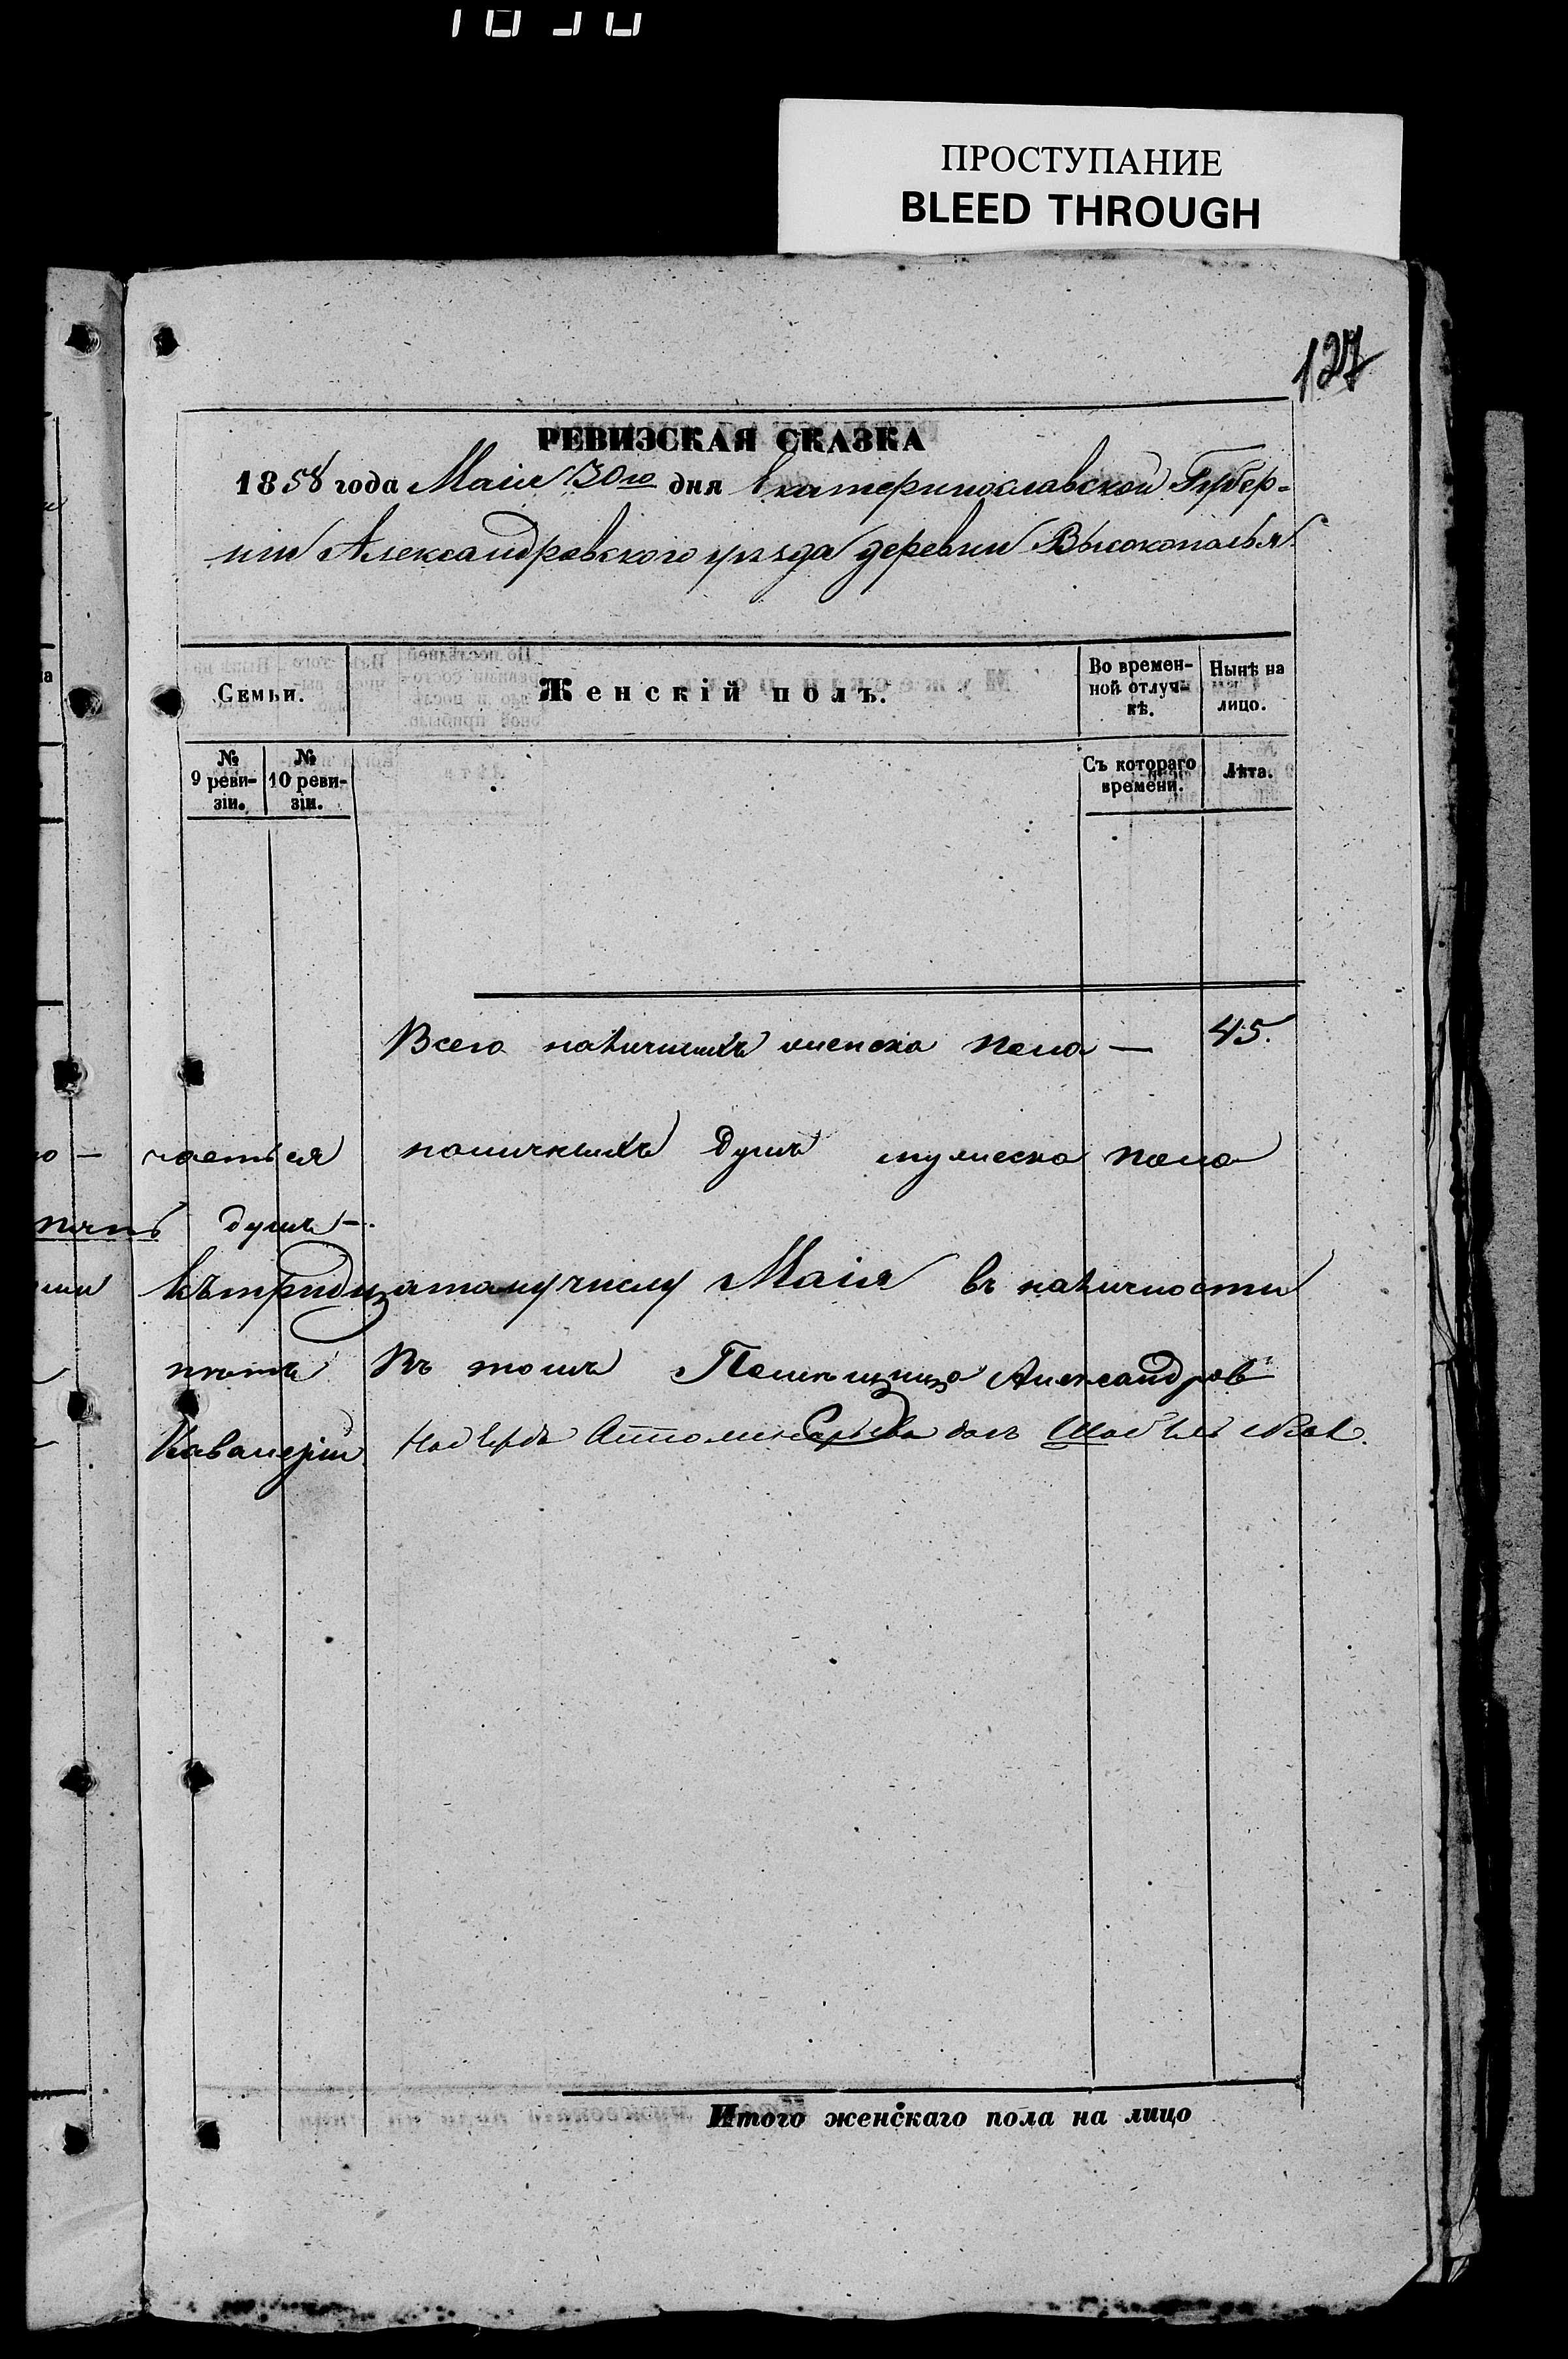 ПРОСТУПАНИЕ
BLEED THROUGH
127
РЕВИЗСКАЯ СКАЗКА
1858 года Маія 30го дня Екатеринославской Губер-
ніи Александровского уѣзда деревни Высокополья
Семьи.
Женскій полъ.
Во времен-
ной отлуч-
кѣ.
Нынѣ на
лицо.
№
9 реви-
зіи.
№
10 реви-
зіи.
Съ котораго
времени.
Лѣта.
Всего наличныхъ женска пола — 45.
наличныхъ душъ мужеска пола
душъ -.
къ тридцатому числу Маія въ наличности
въ томъ Помѣщица Александров
Кавалеріи
Итого женскаго пола на лицо